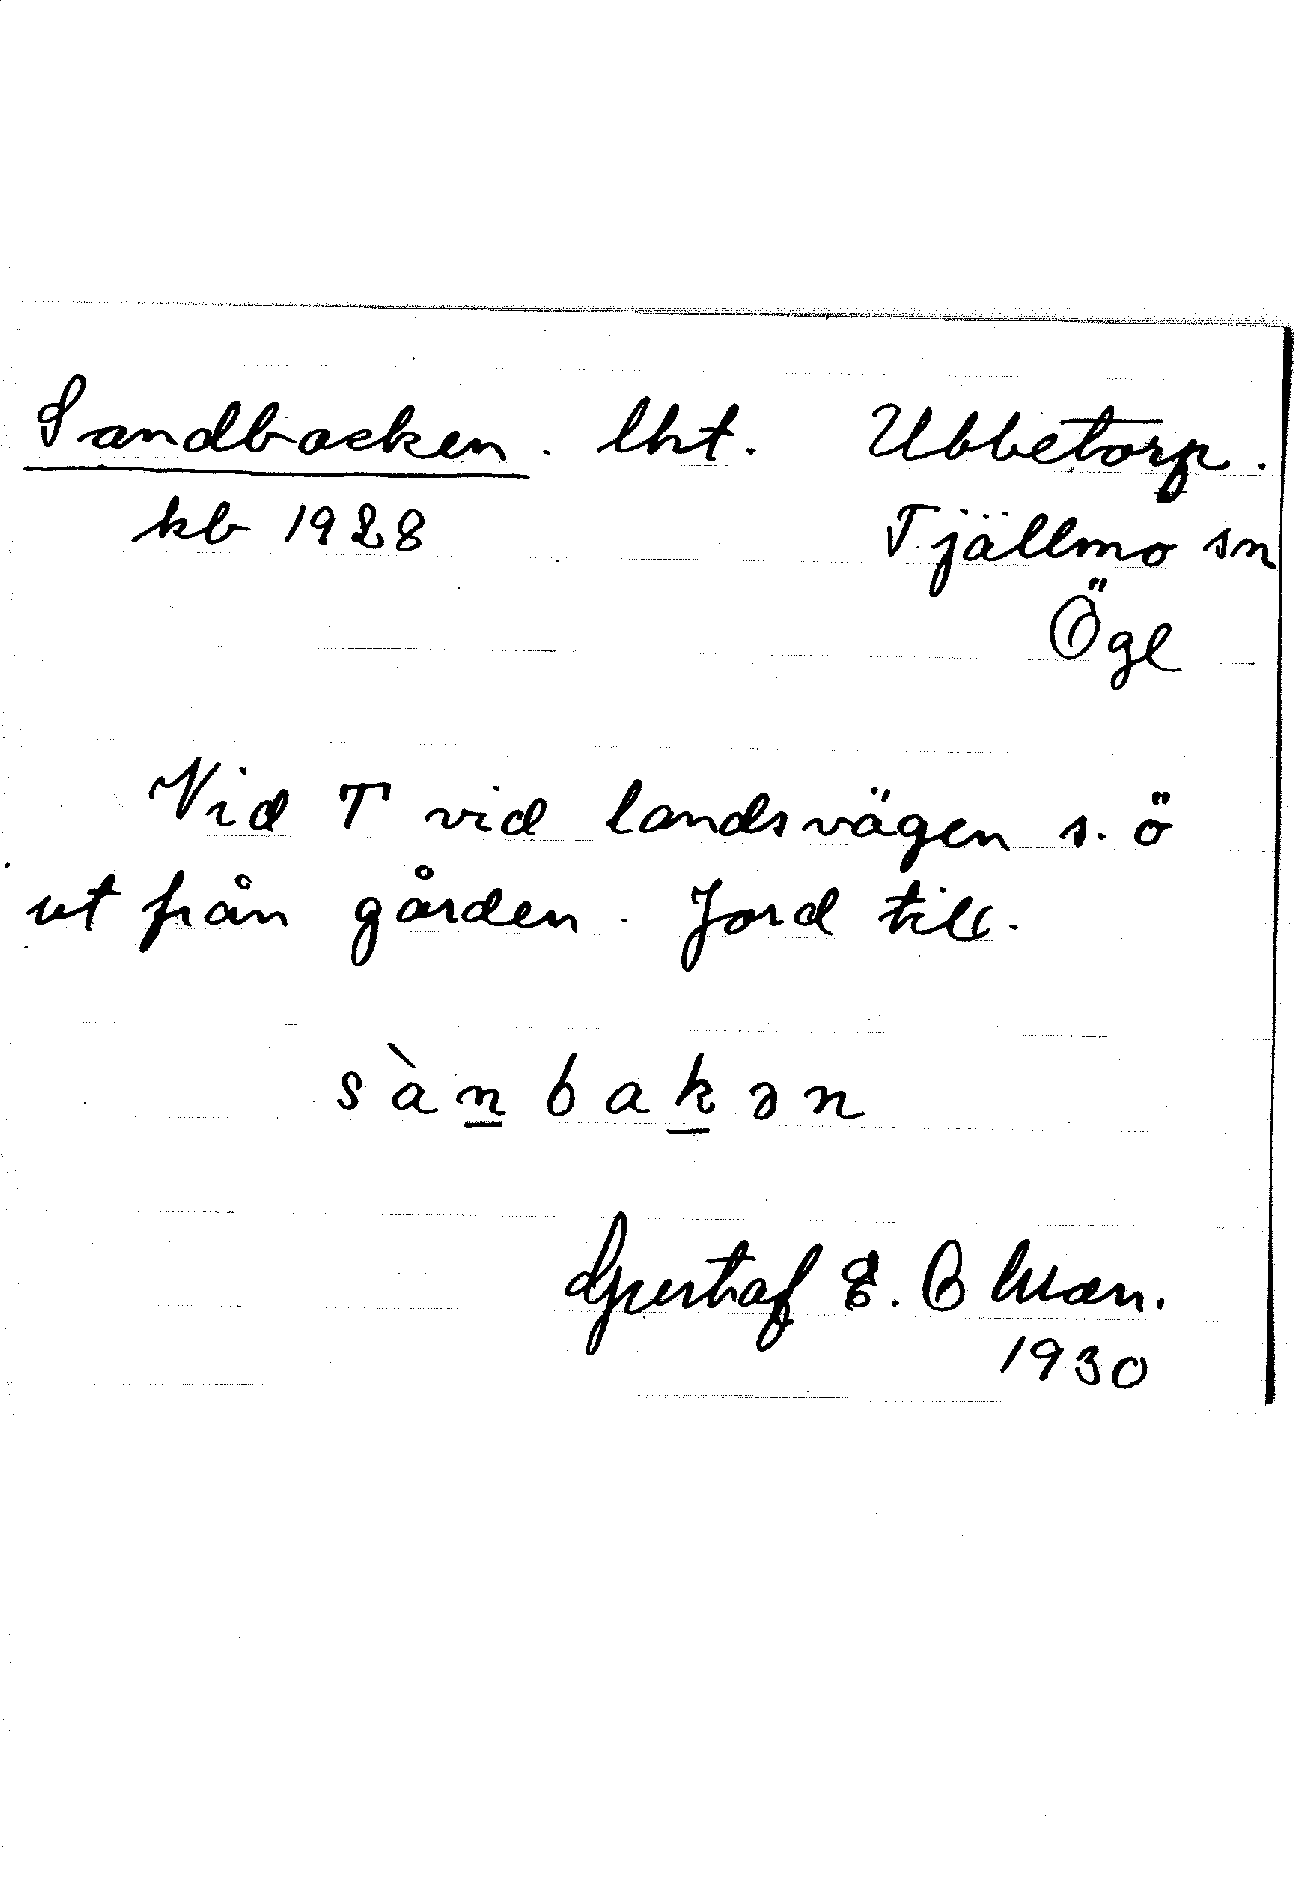 Sandbacken. lht. Ubbetorp.
kb 1928 Tjällmo sn
Ögl
Vid T vid landsvägen s.ö
ut från gården. Jord till.
sànbakən
Gustaf E. Olman.
1930